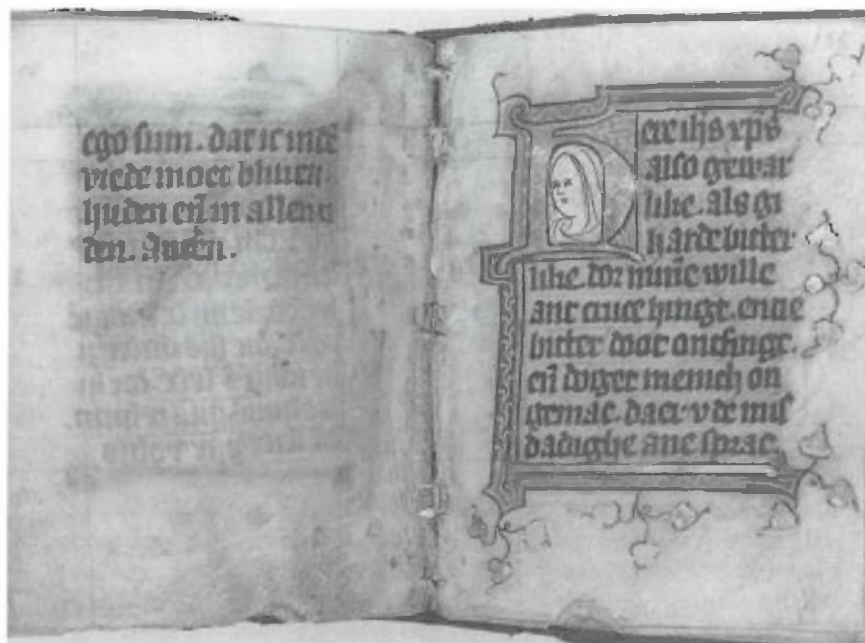 ego sum. dat ic inde
vrede moet bliuen.
huden eñ in allen u
den. Amen.
ere ihs xp̄s
also gewar
like. als gi
harde bitter
like. dor minē wille
ant cruce hingt. enne
bitter doot ontfingt.
eñ doget menich on
gemac. daer v de mis
dadighe ane sprac.